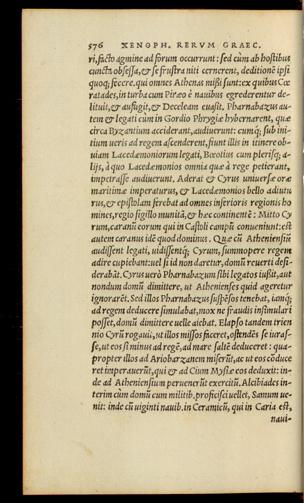 576 XENOPH. RERVM GRAEC.
ri, facto agmine ad forum occurrunt: sed cùm ab hostibus
cuncta obsessa, & se frustra niti cernerent, deditione ipsi
quoq; fecere. qui omnes Athenas missi sunt: ex quibus Cœ
ratades, in turba cum Piræo è nauibus egrederentur de-
lituit, & aufugit, & Deceleam euasit. Pharnabazus au-
tem & legati cùm in Gordio Phrygiæ hybernarent, quæ
circa Byzantium acciderant, audiuerunt: cumq; sub ini-
tium ueris ad regem ascenderent, fiunt illis in itinere ob-
uiam Lacedæmoniorum legati, Bœotius cum plerisq; a-
lijs, à quo Lacedæmonios omnia quæ à rege petierant,
impetrasse audiuerunt. Aderat & Cyrus uniuersæ oræ
maritimæ imperaturus, & Lacedæmonios bello adiutu
rus, & epistolam ferebat ad omnes inferioris regionis ho
mines, regio sigillo munitā, & hæc continentē: Mitto Cy
rum, caranū eorum qui in Castoli campū conueniunt: est
autem caranus idē quod dominus. Quæ cū Atheniensiū
audissent legati, uidissentq; Cyrum, summopere regem
adire cupiebant: uel si id non daretur, domū reuerti desi-
derabāt. Cyrus uerò Pharnabazum sibi legatos iußit, aut
nondum domū dimittere, ut Athenienses quid ageretur
ignorarēt. Sed illos Pharnabazus suspēsos tenebat, iamq;
ad regem deducere simulabat, mox ne fraudis insimulari
posset, domū dimittere uelle aiebat. Elapso tandem trien
nio Cyrū rogauit, ut illos missos faceret, ostendēs se iuras-
se, ut eos si minus ad regē, ad mare saltē deduceret: qua-
propter illos ad Ariobarzanem miserūt, ac ut eos cōduce
ret imperauerūt, qui & ad Cium Mysiæ eos deduxit: in-
de ad Atheniensium peruenerūt exercitū. Alcibiades in-
terim cùm domū cum militib. proficisci uellet, Samum ue-
nit: inde cū uiginti nauib. in Ceramicū, qui in Caria est,
naui-